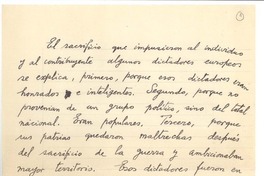 El sacrificio que impusieron al individuo
y al contribuyente algunos dictadores europeos
se explica, primero, porque esos dictadores eran
honrados e inteligentes. Segundo, porque no
provenían de un grupo político, sino del total
nacional. Eran populares. Tercero, porque
sus patrias quedaron maltrechas después
del sacrificio de la guerra y ambicionaban
mayor territorio. Esos dictadores fueron en